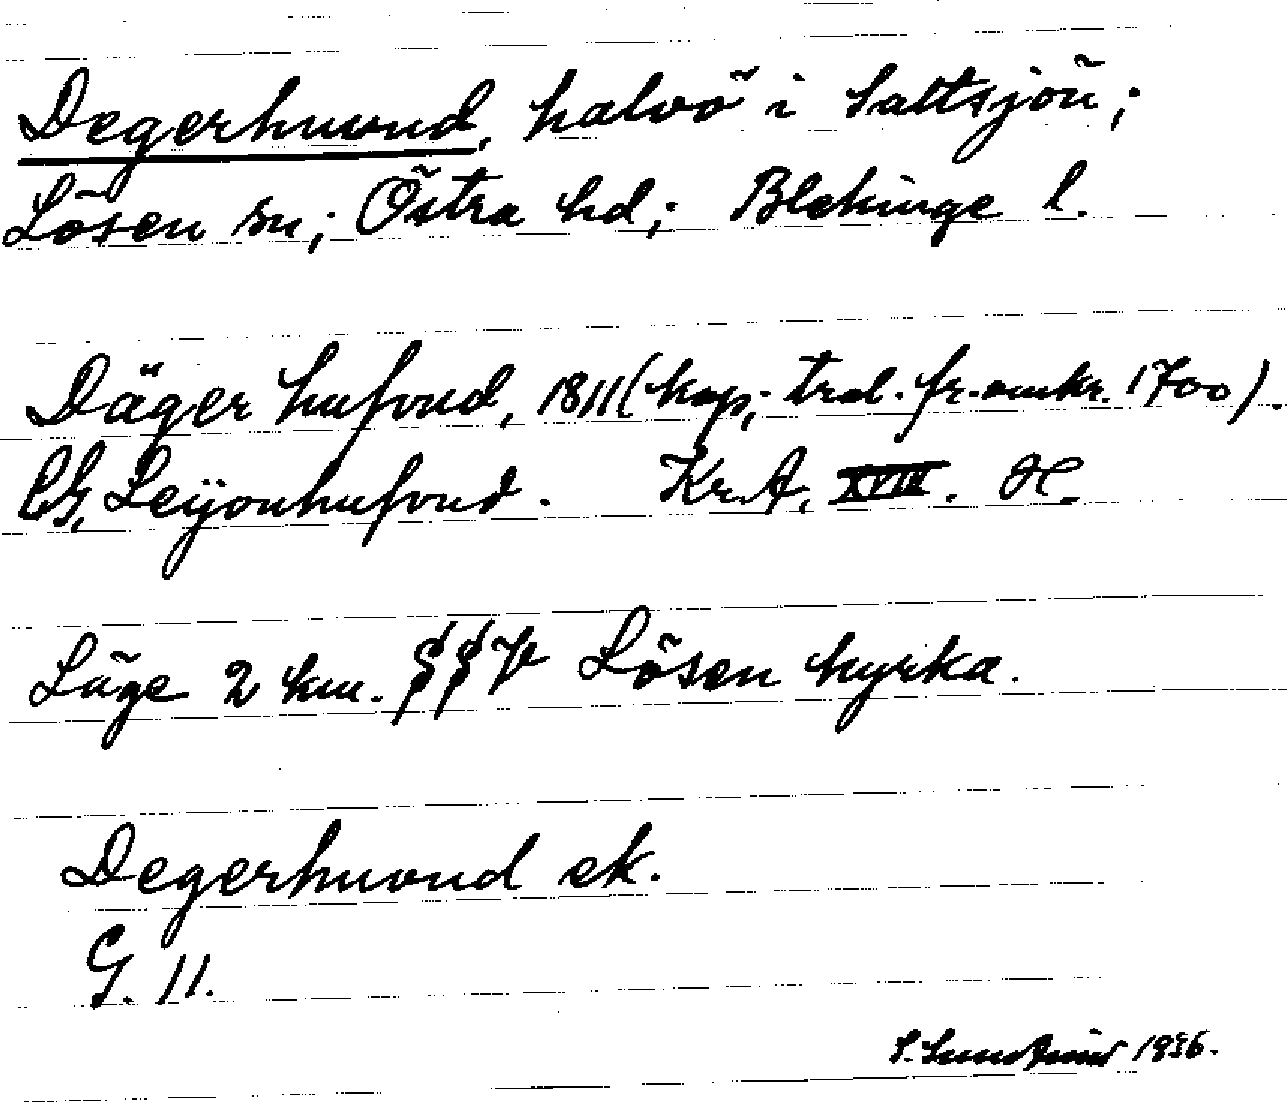 Degerhuvud, halvö i Saltsjön;
Lösen sn; Östra hd; Blekinge l.
Däger hufvud, 1811 (kop; trol. fr. omkr. 1700).
CG, Leijonhufvud. Kr.A. XVIII. H.
Läge 2 km. SSV Lösen kyrka.
Degerhuvud ek.
G. 11.
1936.